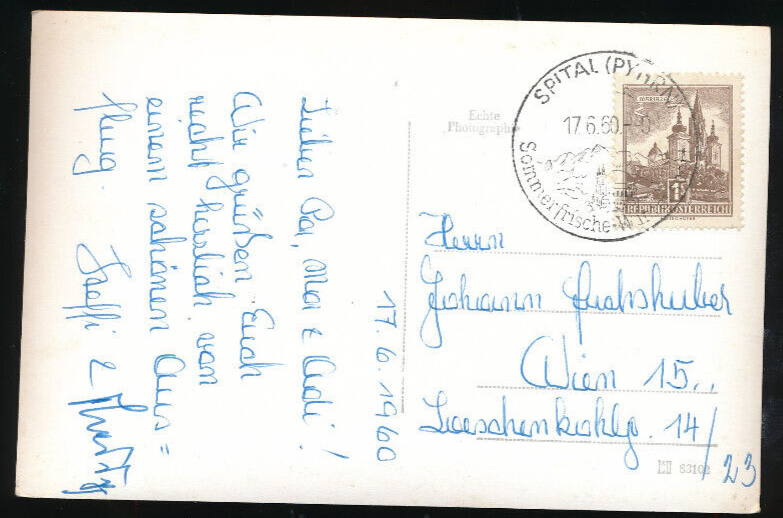 17.6.1960
Lieber Pa, Ma & Rudi!
Wir grüßen Euch
recht herzlich von
einem schönen Aus=
flug
&
Echte
Photographie
SPITAL (PYHRN)
17.6.60
Sommerfrische
MARIAZELL
REPUBLIK ÖSTERREICH
Herrn
Johann Fuchshuber
Wien 15..
Loeschenkohlg. 14/23
83102